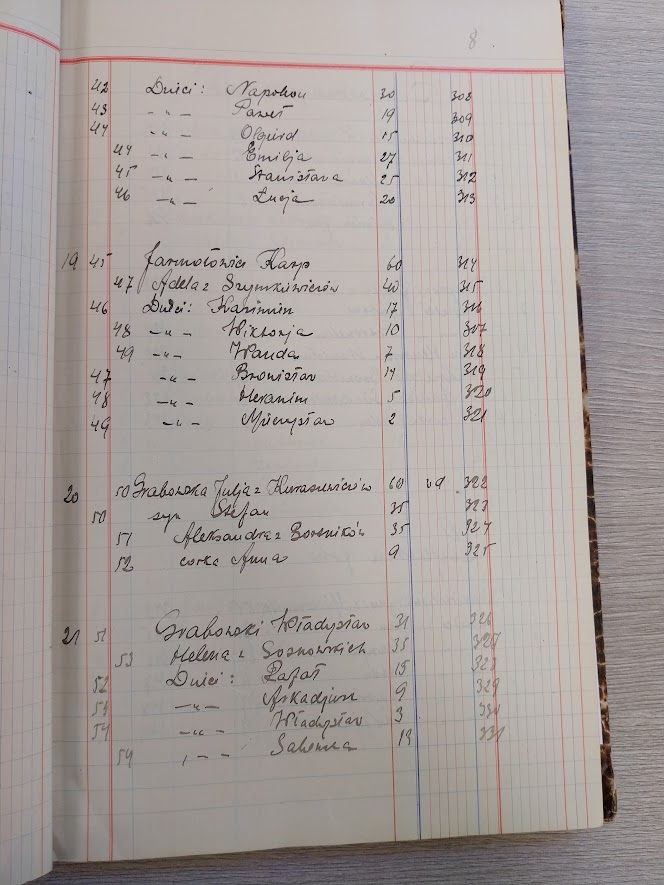 8.
42 Dzieci: Napoleon 30 308
43 -„- Paweł 19 309
44 -„- Olgierd 15 310
44 -„- Emilja 27 311
45 -„- Stanisława 25 312
46 -„- Łucja 20 313
19 45 Jarmołowicz Karp 60 314
47 Adela z Szymkiewiczów 40 315
46 Dzieci: Kazimierz 17 316
48 -„- Wiktorja 10 317
49 -„- Wanda 7 318
47 -„- Bronisław 14 319
48 -„- 5 320
49 -„- Mieczysław 2 321
20 50 Grabowska Julja z Kuraszewiczów 60 wd 322
50 syn Stefan 35 323
51 Aleksandra z 35 324
52 córka Anna 9 325
21 51 Grabowski Władysław 31 326
53 Helena z Sosnowskich 35 327
52 Dzieci: Rafał 15 328
53 -„- Arkadjusz 9 329
54 -„- Władysław 3 330
54 „ - - 331